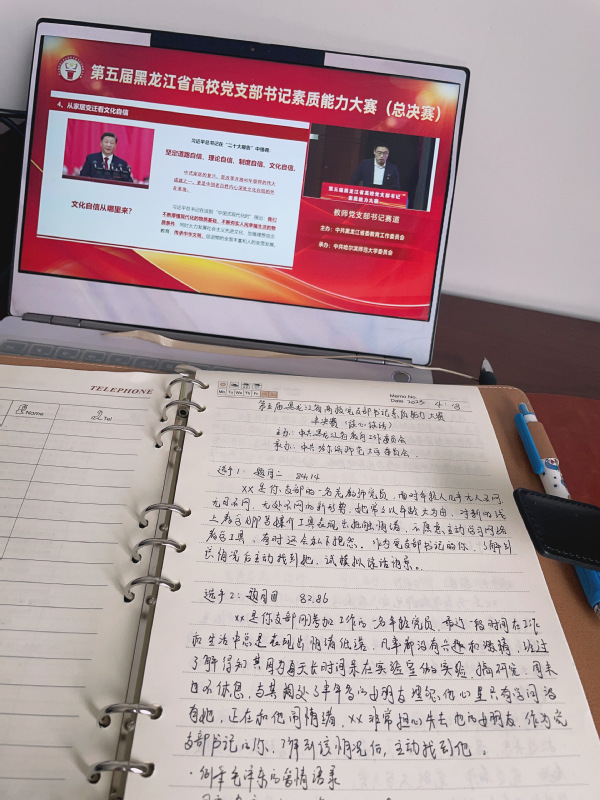 第五届黑龙江省高校党支部书记素质能力大赛（总决赛）
4、从家居变迁看文化自信
习近平总书记在“二十大报告”中强调：
坚定道路自信、理论自信、制度自信、文化自信。
文化自信从哪里来？
第五届黑龙江省高校党支部书记
素质能力大赛
教师党支部书记赛道
主办：中共黑龙江省委教育工作委员会
承办：中共哈尔滨师范大学委员会
TELEPHONE
Name
Tel
Mo Tu We Th Fr Sa Su
Memo No.
Date 2023 4 · 13
第五届黑龙江省高校党支部书记素质能力大赛
总决赛（谈心谈话）
主办：中共黑龙江省委教育工作委员会
承办：中共哈尔滨师范大学委员会
选手1：题目二 84.14
XX是你支部的一名老教师党员，面对年轻人几乎无人不网、
无日不网、无处不网的新形势，她常常以年龄大为由，对新的线
上教学APP等媒介工具表现出抵触情绪，不愿意主动学习网络
教学工具，有时还会私下抱怨。作为党支部书记的你，了解到
该情况后主动找到她，试模拟谈话场景。
选手2：题目四 82.86
XX是你支部刚参加工作的一名年轻党员，最近一段时间在工作
和生活中总是表现出情绪低落，凡事都没有兴趣和激情，经过
了解得知其因为每天长时间泡在实验室做实验、搞研究，周末
也不休息，与其相处了半年多的男朋友埋怨，他心里只有学问没
有她，正在和他闹情绪，XX非常担心失去他的男朋友，作为党
支部书记的你，了解到该情况后，主动找到他。
·例举毛泽东的爱情语录